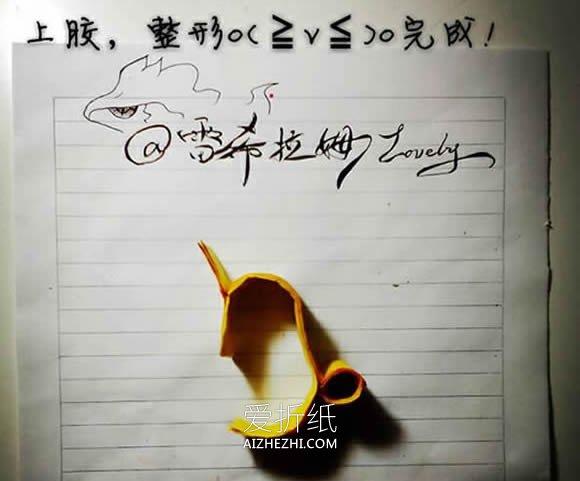 上胶，整形o(≧v≦)o完成！
@雷希拉姆Lovely
爱折纸
AIZHEZHI.COM